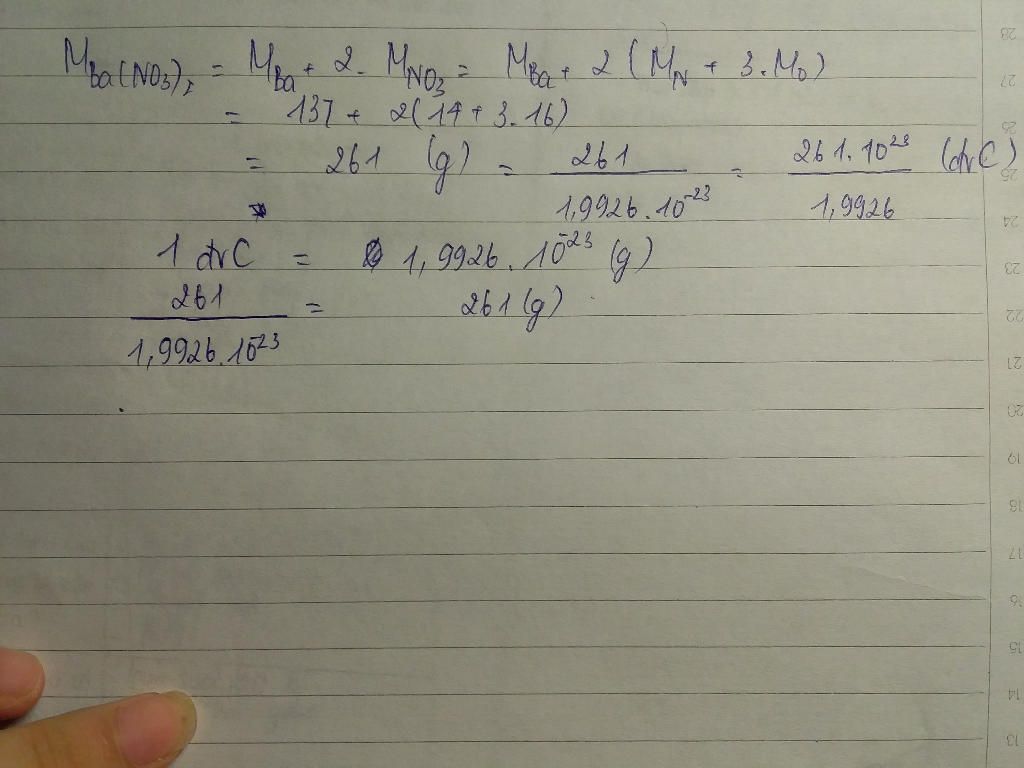 M_Ba(NO3)2 = M_Ba + 2. M_NO3 = M_Ba + 2 (M_N + 3.M_O)
= 137 + 2(14 + 3.16)
= 261 (g) = 261 / 1,9926.10^-23 = 261.10^23 / 1,9926 (đvC)
1 đvC = 1,9926.10^-23 (g)
261 / 1,9926.10^-23 = 261 (g)
28
27
26
25
24
23
22
21
20
19
18
17
16
15
14
13